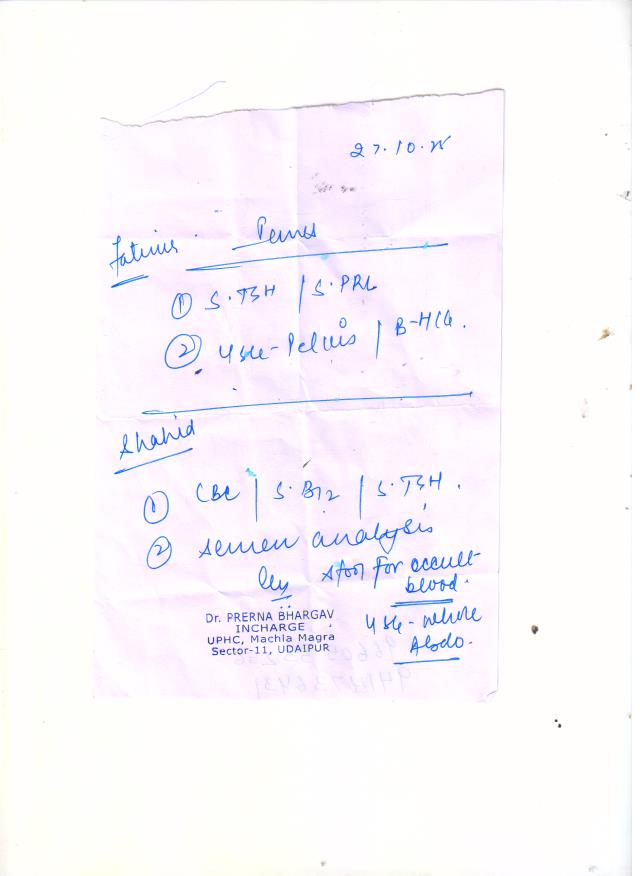 27.10.25
Fatima
① S.TSH | S.PRL
② USG-Pelvis | B-HCG.
Shahid
① CBC | S.B12 | S.TSH.
② semen analysis
stool for occult
blood.
USG-whole
Abdo.
Dr. PRERNA BHARGAV
INCHARGE
UPHC, Machla Magra
Sector-11, UDAIPUR